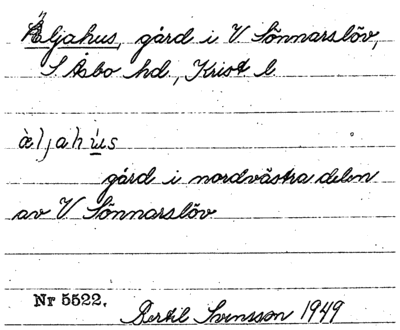 Äljahus, gård i V Sönnarslöv,
S Åsbo hd, Krist l
àljahùs
gård i nordvästra delen
av V Sönnarslöv
Nr 5522.
Bertil Svensson 1949